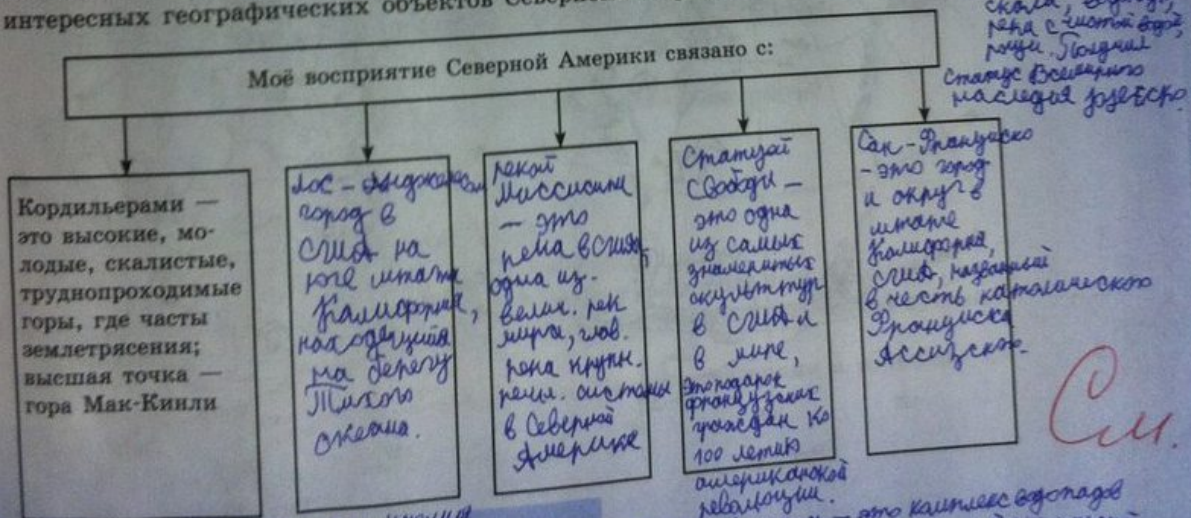 интересных географических объектов
скала,
река с чистой водой,
рощи. Получил
статус Всемирного
наследия ЮНЕСКО
Моё восприятие Северной Америки связано с:
Кордильерами —
это высокие, мо-
лодые, скалистые,
труднопроходимые
горы, где часты
землетрясения;
высшая точка —
гора Мак-Кинли
город в
США на
юге штата
Калифорния,
находящийся
на берегу
Тихого
океана.
рекой
Миссисипи
— это
река в США,
одна из
велич. рек
мира, глав.
река крупн.
речн. системы
в Северной
Америке
Статуей
Свободы —
это одна
из самых
знаменитых
скульптур
в США и
в мире,
это подарок
французских
граждан ко
100 летию
американской
революции.
Сан-Франциско
- это город
и округ в
штате
Калифорния,
США, названный
в честь католического
Франциска
Ассизского.
См.
это комплекс водопадов